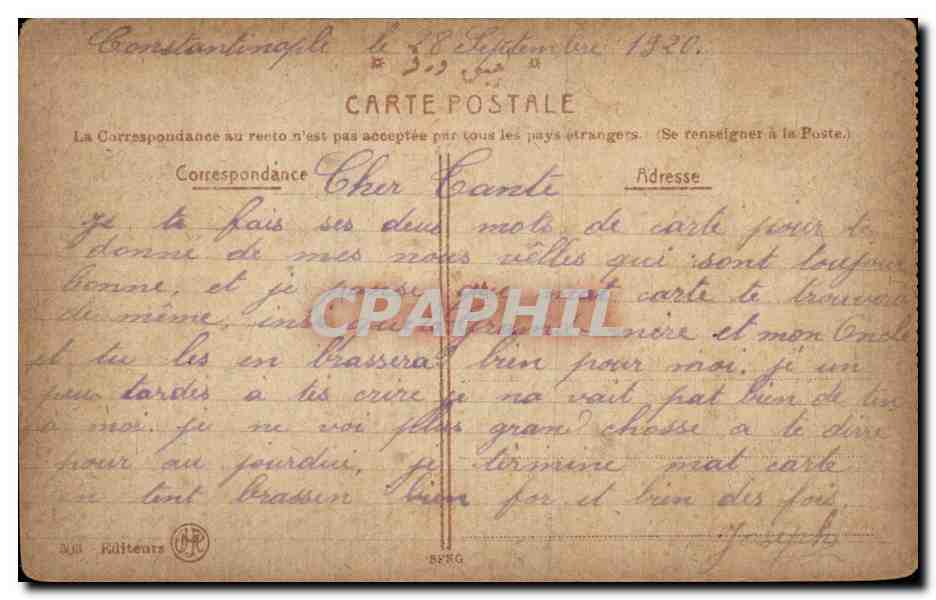 Constantinople le 28 Septembre 1920.
CARTE POSTALE
La Correspondance au recto n'est pas acceptée par tous les pays étrangers. (Se renseigner à la Poste.)
Correspondance Cher Tante Adresse
Je te fais ses deus mots de carte pour te
donne de mes nous vêlles qui sont toujour
bonne, et je pense que mat carte te trouvera
de même, insi que grand mère et mon Oncle
et tu les en brassera bien pour moi. j'ai un
peu tardes a tes crire je na vait pat bien de tem
a moi. je ne voi plus grand chosse a te dirre
pour au jourdui, je termine mat carte
en tent brassen bien for et bien des fois.
Joseph
CPAPHIL
Editeurs
SFNG